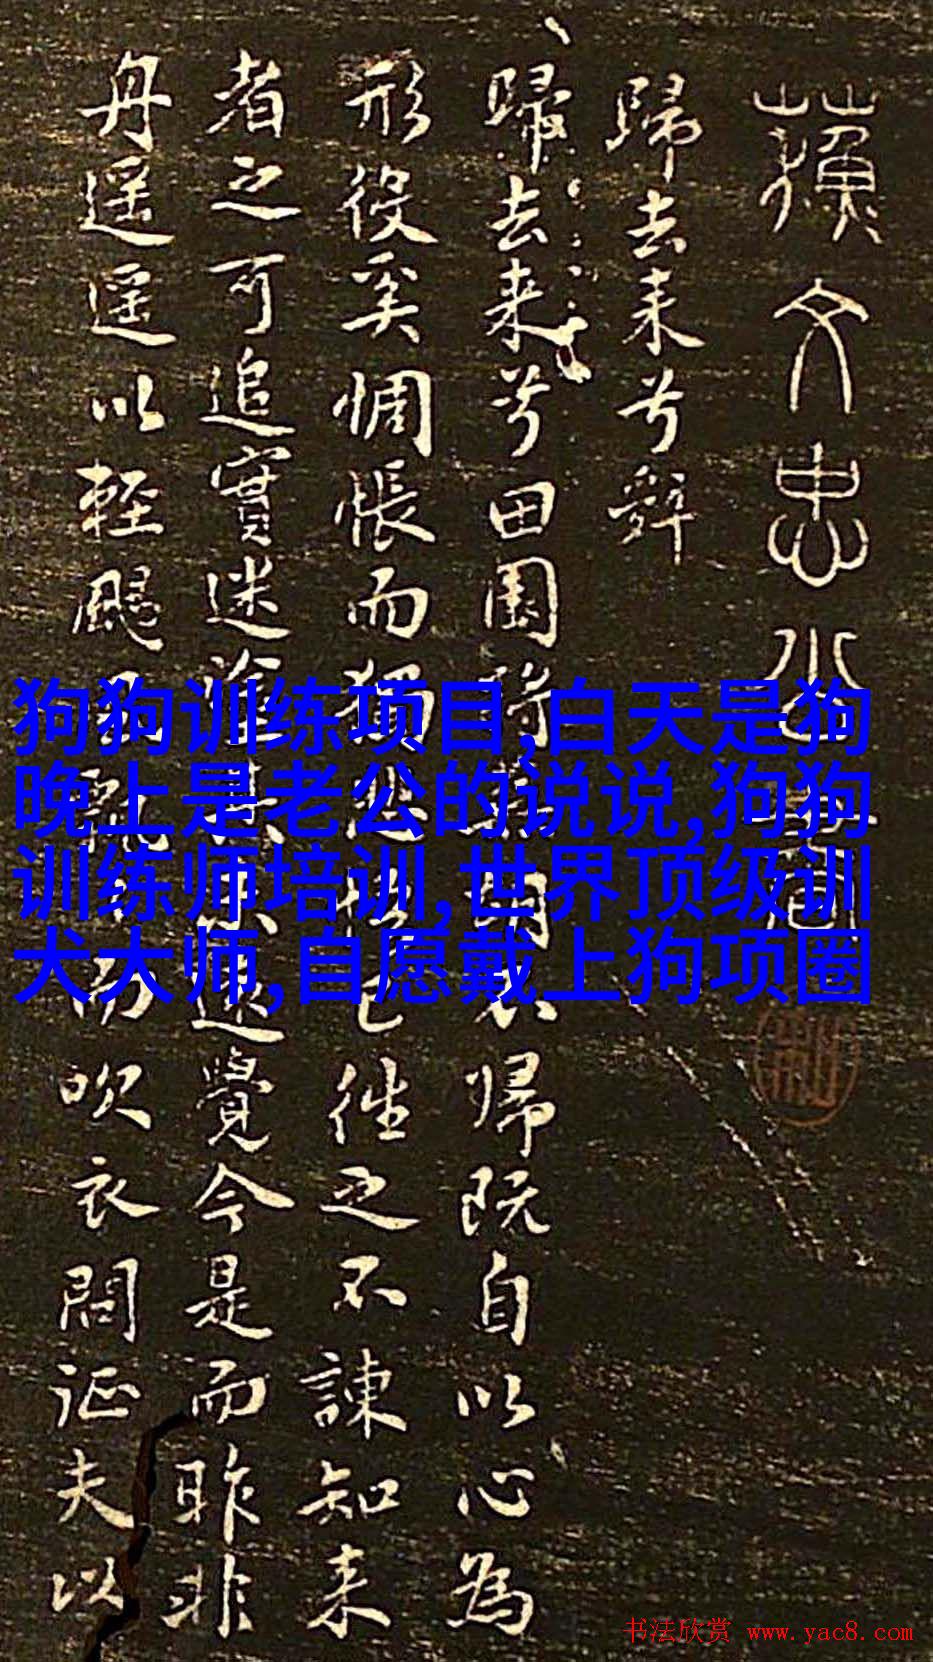 蘇文忠公
歸去来兮辭
歸去来兮田園将蕪胡不歸既自以心為
形役奚惆悵而獨悲悟已往之不諫知来
者之可追實迷途其未遠覺今是而昨非
舟遥遥以輕颺風飄而吹衣問征夫以
狗狗训练项目,白天是狗
晚上是老公的说说,狗狗
训练师培训,世界顶级训
犬大师,自愿戴上狗项圈
书法欣赏 www.yac8.com